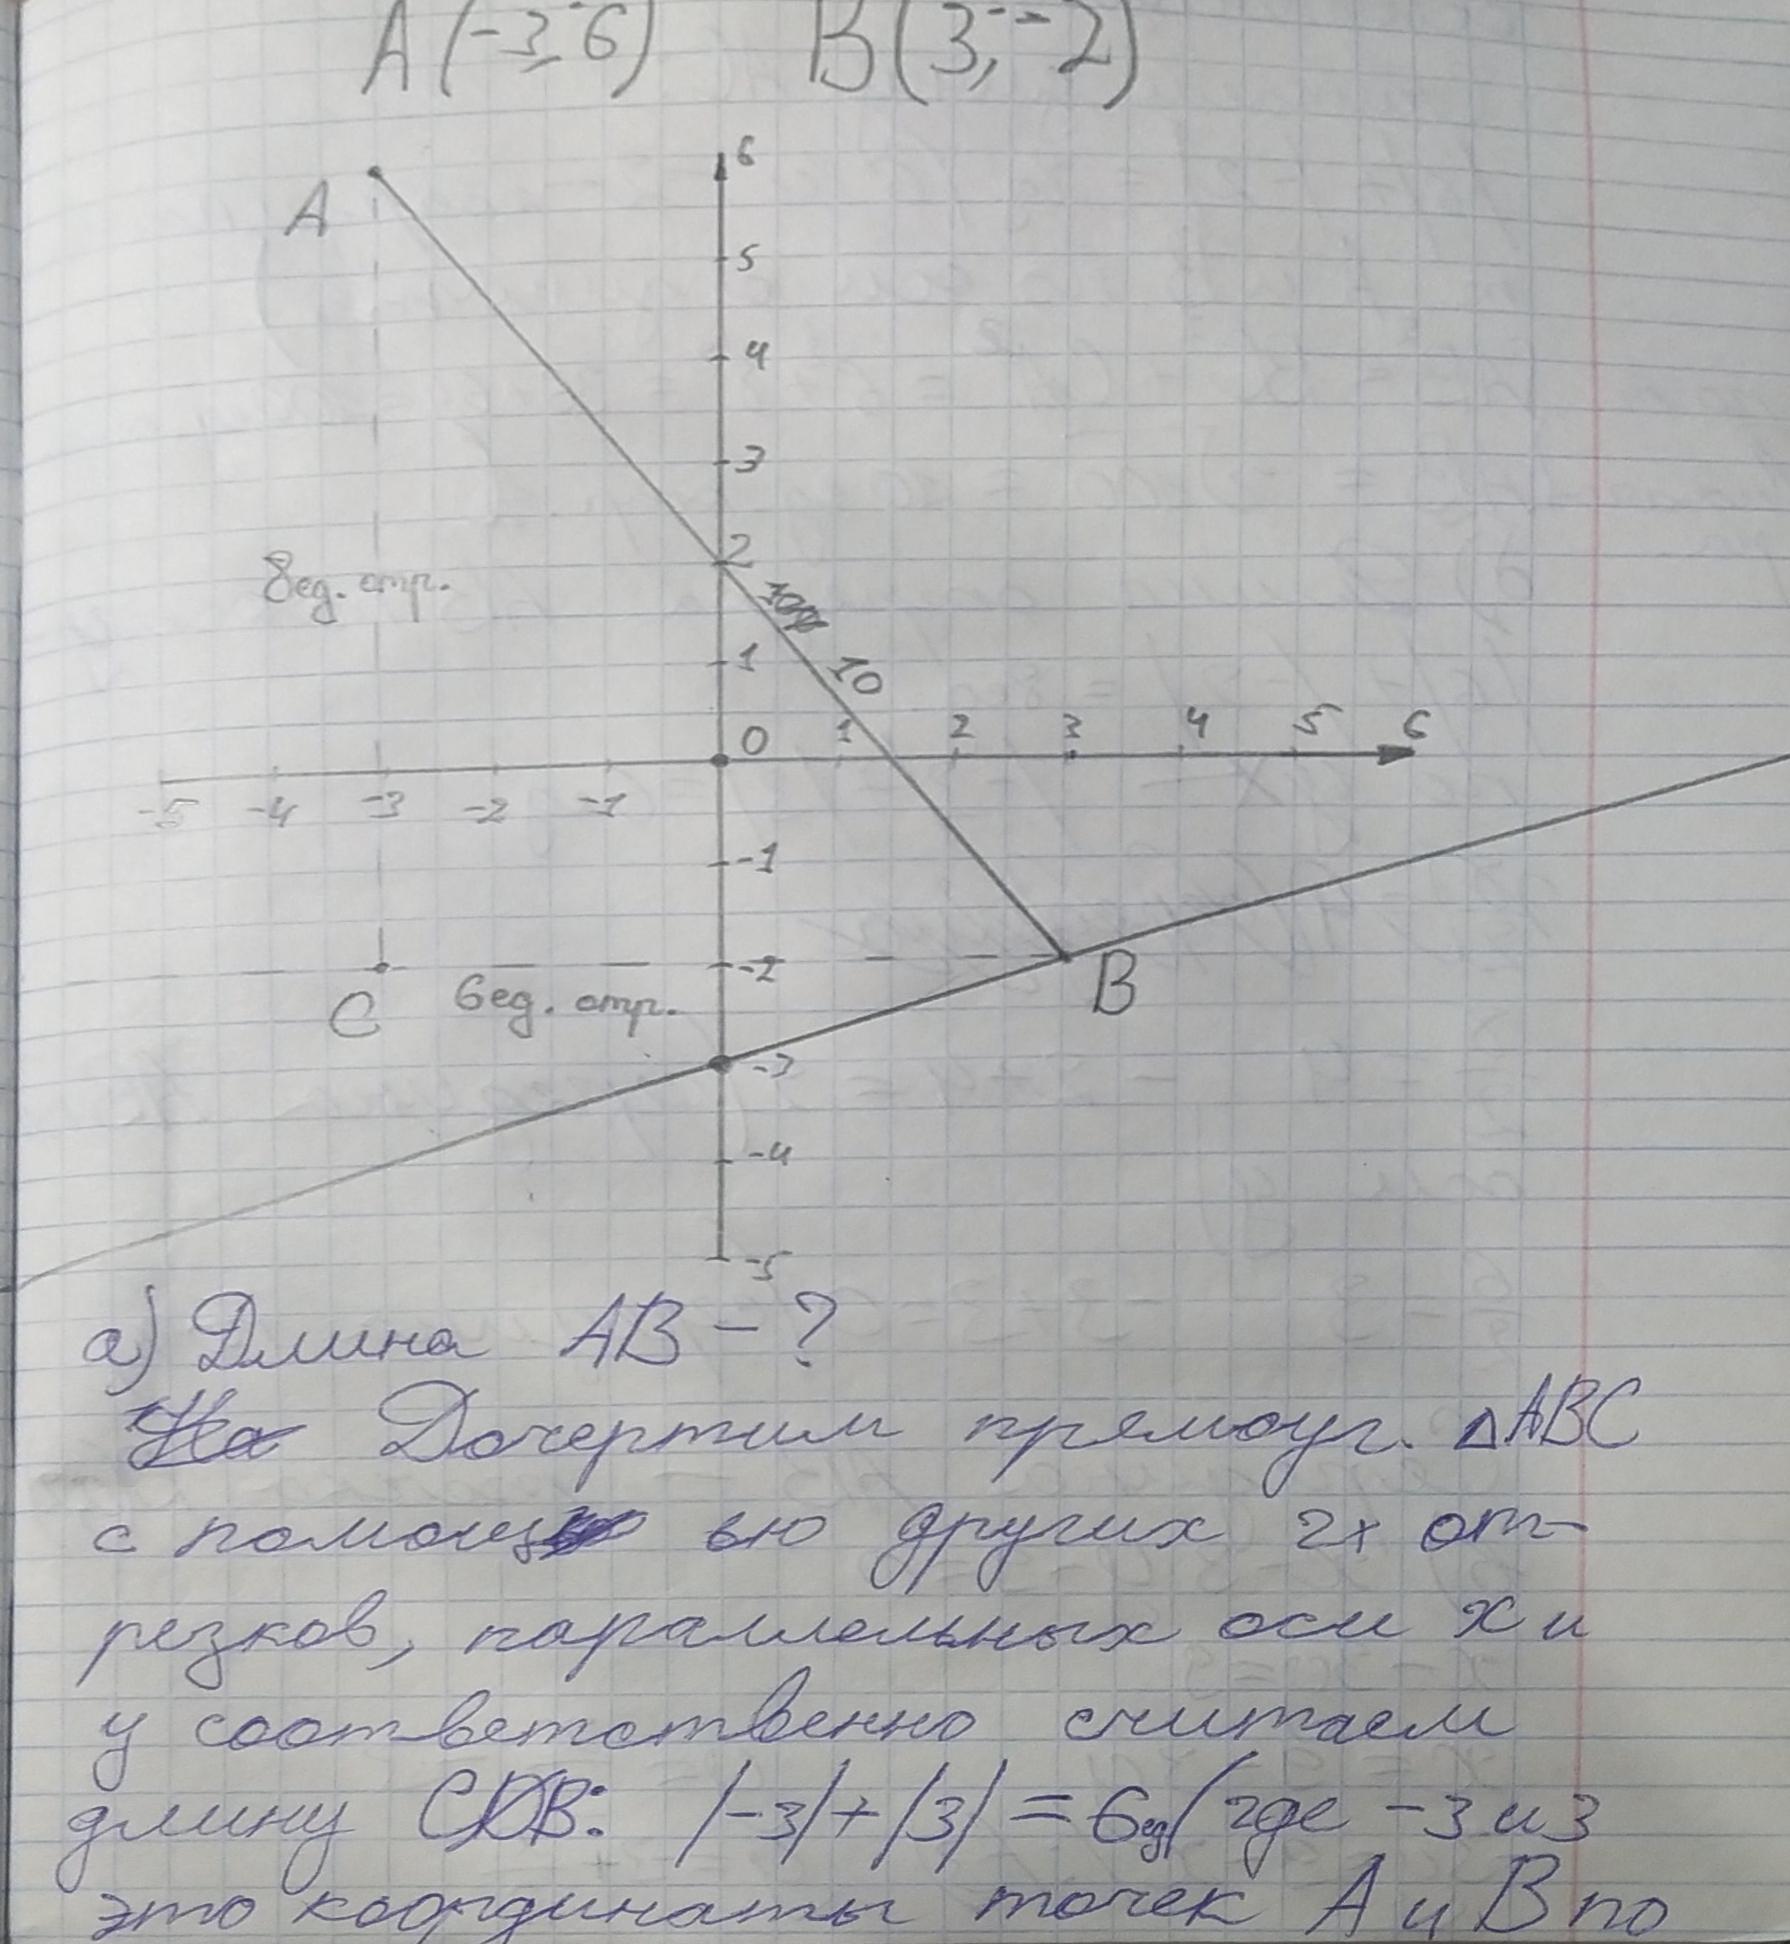 A(-3;6) B(3;-2)
6
A
5
4
3
2
8ед. отр.
10
1
0 1 2 3 4 5 6
-5 -4 -3 -2 -1
-1
-2
B
C 6ед. отр.
-3
-4
-5
а) Длина AB - ?
Дочертим прямоуг. △ABC
с помощ ью других 2х от-
резков, параллельных оси x и
y соответственно считаем
длину CB: |-3|+|3|=6ед(где -3 и 3
это координаты точек A и B по